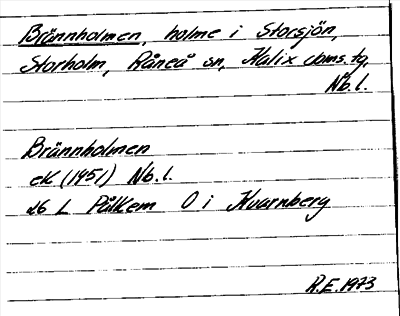 Brännholmen, holme i Storsjön,
Storholm, Råneå sn, Kalix doms.tg,
Nb.l.
Brännholmen
ek (1951) Nb.l.
26 L Pålkem O i Kvarnberg
R.E. 1973